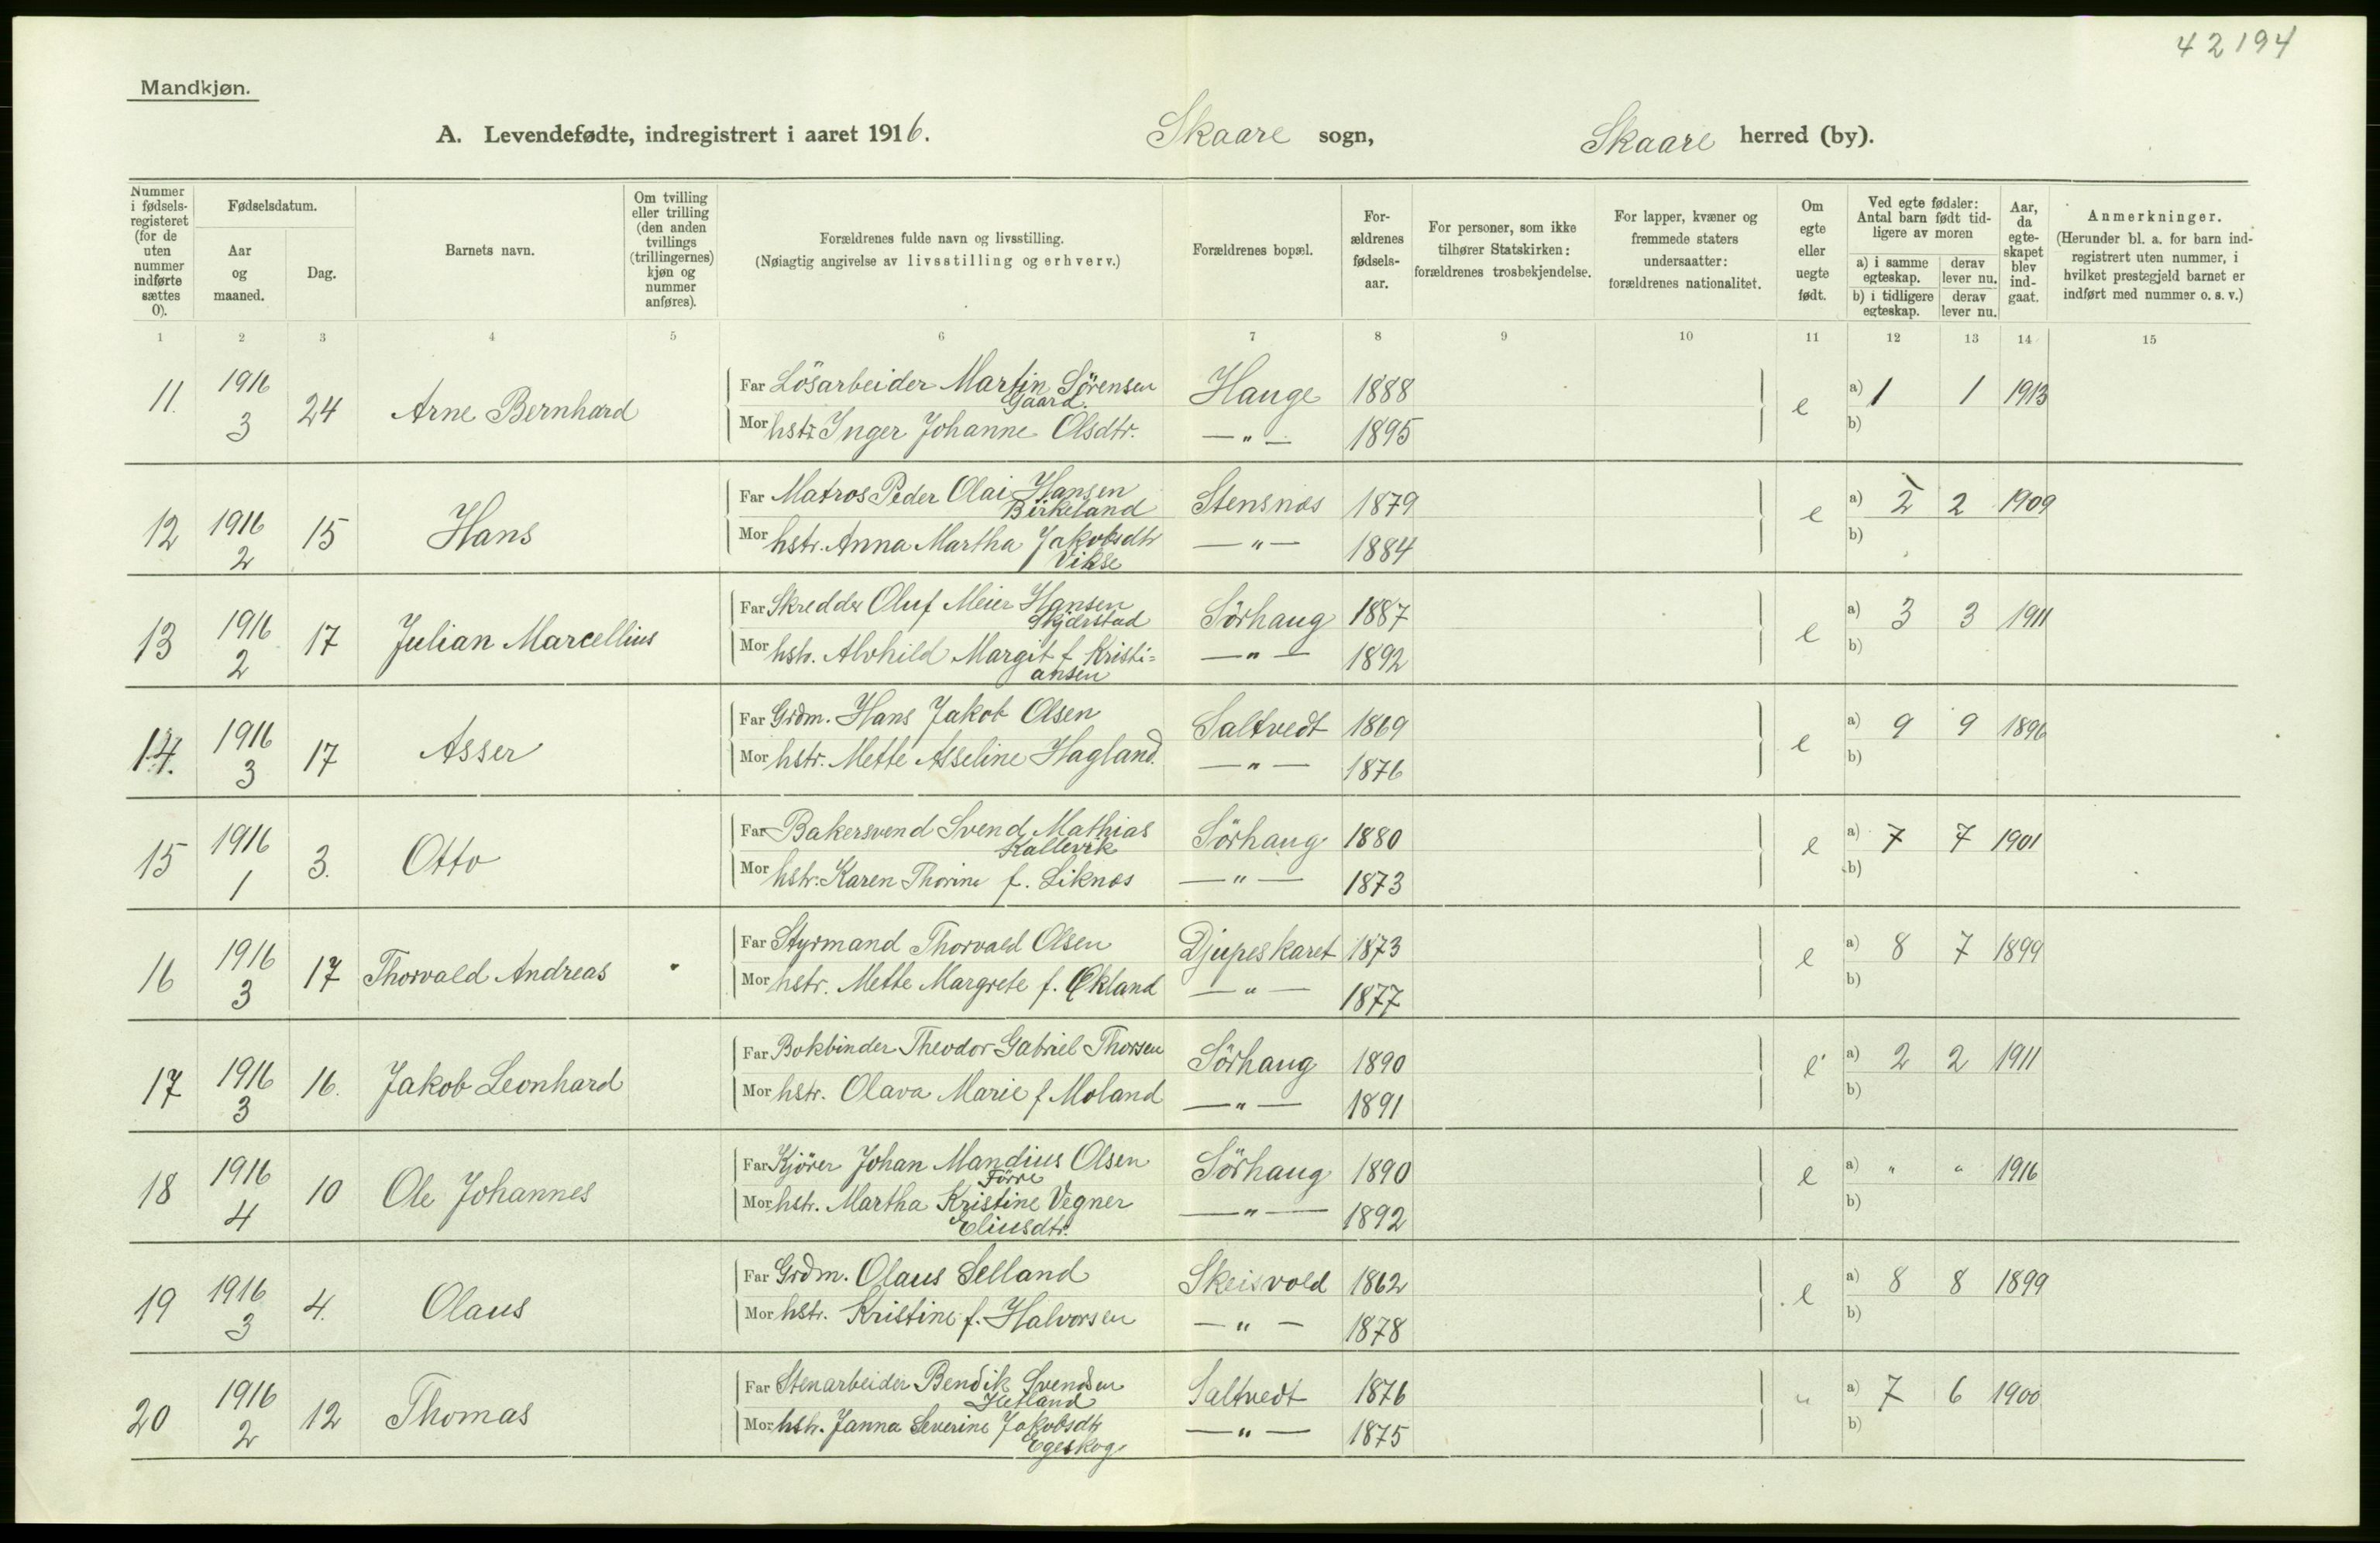 42194
Mandkjøn.
A. Levendefødte, indregistrert i aaret 1916. Skaare sogn, Skaare herred (by).
Nummer i fødsels- registeret (for de uten nummer indførte sættes 0).
Fødselsdatum.
Aar og maaned.
Dag.
Barnets navn.
Om tvilling eller trilling (den anden tvillings (trillingernes) kjøn og nummer anføres).
Forældrenes fulde navn og livsstilling.
(Nøiagtig angivelse av livsstilling og erhverv.)
Forældrenes bopæl.
For- ældrenes fødsels- aar.
For personer, som ikke tilhører Statskirken: forældrenes trosbekjendelse.
For lapper, kvæner og fremmede staters undersaatter: forældrenes nationalitet.
Om egte eller uegte født.
Ved egte fødsler: Antal barn født tid- ligere av moren
a) i samme egteskap. derav lever nu.
b) i tidligere egteskap. derav lever nu.
Aar, da egte- skapet blev ind- gaat.
Anmerkninger.
(Herunder bl. a. for barn ind- registrert uten nummer, i hvilket prestegjeld barnet er indført med nummer o. s. v.)
1 2 3 4 5 6 7 8 9 10 11 12 13 14 15
11. 1916 3 24 Arne Bernhard
Far Lösarbeider Martin Sörensen Gaard. Hauge 1888 e a) 1 1 1913
Mor hstr Inger Johanne Olsdtr. —"— 1895 b)
12 1916 2 15 Hans
Far Matros Peder Olai Hansen Birkeland Stensnæs 1879 e a) 2 2 1909
Mor hstr. Anna Martha Jakobsdtr Vikse —"— 1884 b)
13 1916 2 17 Julian Marcellius
Far Skredder Oluf Meier Hansen Skjerstad Sörhaug 1887 e a) 3 3 1911
Mor hstr. Alvhild Margit f Kristi= ansen —"— 1892 b)
14. 1916 3 17 Asser
Far Grdm. Hans Jakob Olsen Saltvedt 1869 e a) 9 9 1896
Mor hstr. Mette Asseline Hagland. —"— 1876 b)
15 1916 1 3. Otto
Far Bakersvend Svend Mathias Kallevik Sörhaug 1880 e a) 7 7 1901
Mor hstr. Karen Thorine f. Liknæs —"— 1873 b)
16 1916 3 17 Thorvald Andreas
Far Styrmand Thorvald Olsen Djupeskaret 1873 e a) 8 7 1899
Mor hstr. Mette Margrete f. Økland —"— 1877 b)
17 1916 3 16. Jakob Leonhard
Far Bokbinder Theodor Gabriel Thorsen Sörhaug 1890 e a) 2 2 1911
Mor hstr. Olava Marie f Moland —"— 1891 b)
18 1916 4 10 Ole Johannes
Far Kjörer Johan Mandius Olsen Förre Sörhaug 1890 e a) " " 1916
Mor hstr. Martha Kristine Vegner Eliusdtr. —"— 1892 b)
19 1916 3 4. Olaus
Far Grdm. Olaus Selland Skeisvold 1862 e a) 8 8 1899
Mor hstr. Kristine f. Halvorsen —"— 1878 b)
20 1916 2 12 Thomas
Far Stenarbeider Bendik Svendsen Hetland Saltvedt 1876 " a) 7 6 1900
Mor hstr. Janna Severine Jakobsdtr Egeskog —"— 1875 b)